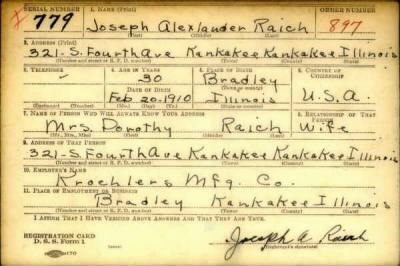 SERIAL NUMBER 1. NAME (Print) ORDER NUMBER
X 779 Joseph Alexlander Raich 897
(First) (Middle) (Last)
2. ADDRESS (Print)
321. S. Fourth Ave Kankakee Kankakee Illinois
(Number and street or R. F. D. number) (Town) (County) (State)
3. TELEPHONE 4. AGE IN YEARS 5. PLACE OF BIRTH 6. COUNTRY OF CITIZENSHIP
30 Bradley
DATE OF BIRTH (Town or county)
Feb 20. 1910 Illinois U.S.A.
(Exchange) (Number) (Mo.) (Day) (Yr.) (State or country)
7. NAME OF PERSON WHO WILL ALWAYS KNOW YOUR ADDRESS 8. RELATIONSHIP OF THAT PERSON
Mrs. Dorothy Raich Wife
(Mr., Mrs., Miss) (First) (Middle) (Last)
9. ADDRESS OF THAT PERSON
321. S. Fourth Ave Kankakee Kankakee Illinois
(Number and street or R. F. D. number) (Town) (County) (State)
10. EMPLOYER'S NAME
Kroehlers Mfg. Co.
11. PLACE OF EMPLOYMENT OR BUSINESS
Bradley Kankakee Illinois
(Number and street or R. F. D. number) (Town) (County) (State)
I AFFIRM THAT I HAVE VERIFIED ABOVE ANSWERS AND THAT THEY ARE TRUE.
REGISTRATION CARD
D. S. S. Form 1 Joseph A Raich
(Registrant's signature)